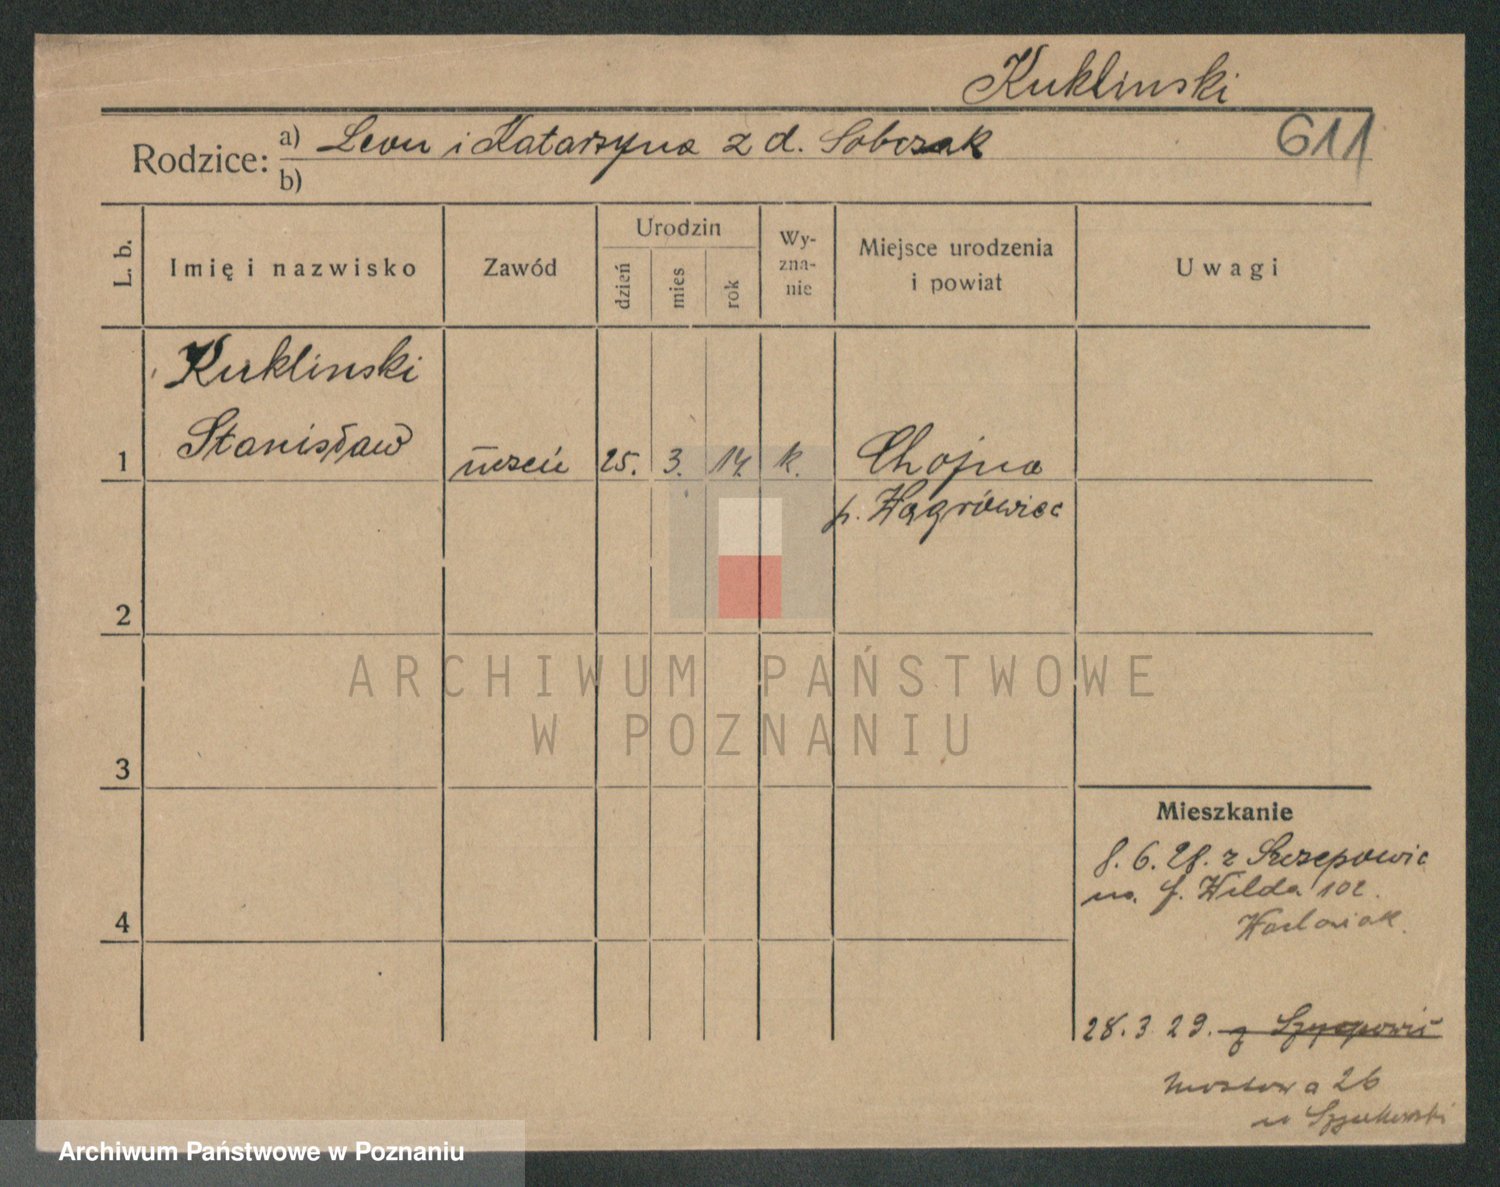 Kuklinski
Rodzice: a) Leon i Katarzyna z d. Sobczak
611
b)
L. b.
Imię i nazwisko
Zawód
Urodzin
dzień
mies
rok
Wy-
zna-
nie
Miejsce urodzenia
i powiat
Uwagi
Kuklinski
Stanisław
1
uczeń 25. 3. 14. k. Chojna
p. Wągrówiec
2
3
4
Mieszkanie
8. 6. 28. z Szczepowic
na f. Wilda 102.
28. 3 29. z
Mostowa 26
u
ARCHIWUM PAŃSTWOWE
W POZNANIU
Archiwum Państwowe w Poznaniu